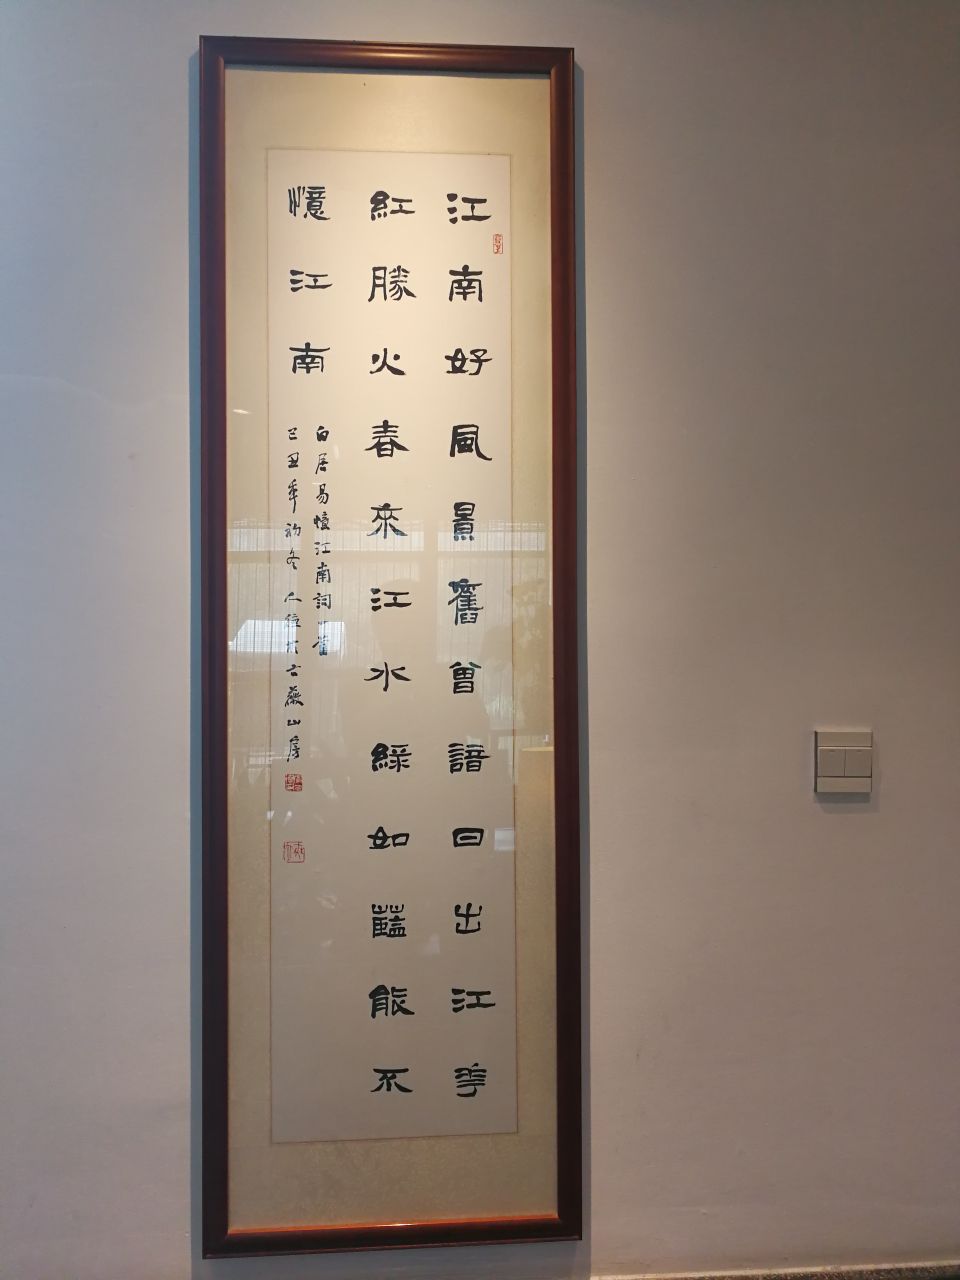 江南好風景舊曾諳日出江華
紅勝火春來江水綠如藍能不
憶江南
白居易憶江南詞一首
己丑年初冬 古藤山房